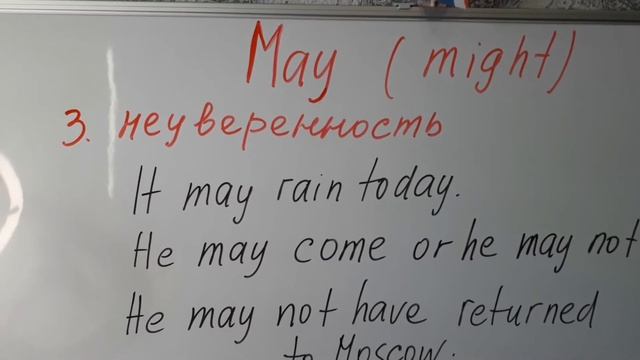 May (might)
3. неуверенность
It may rain today.
He may come or he may not
He may not have returned
to Moscow.